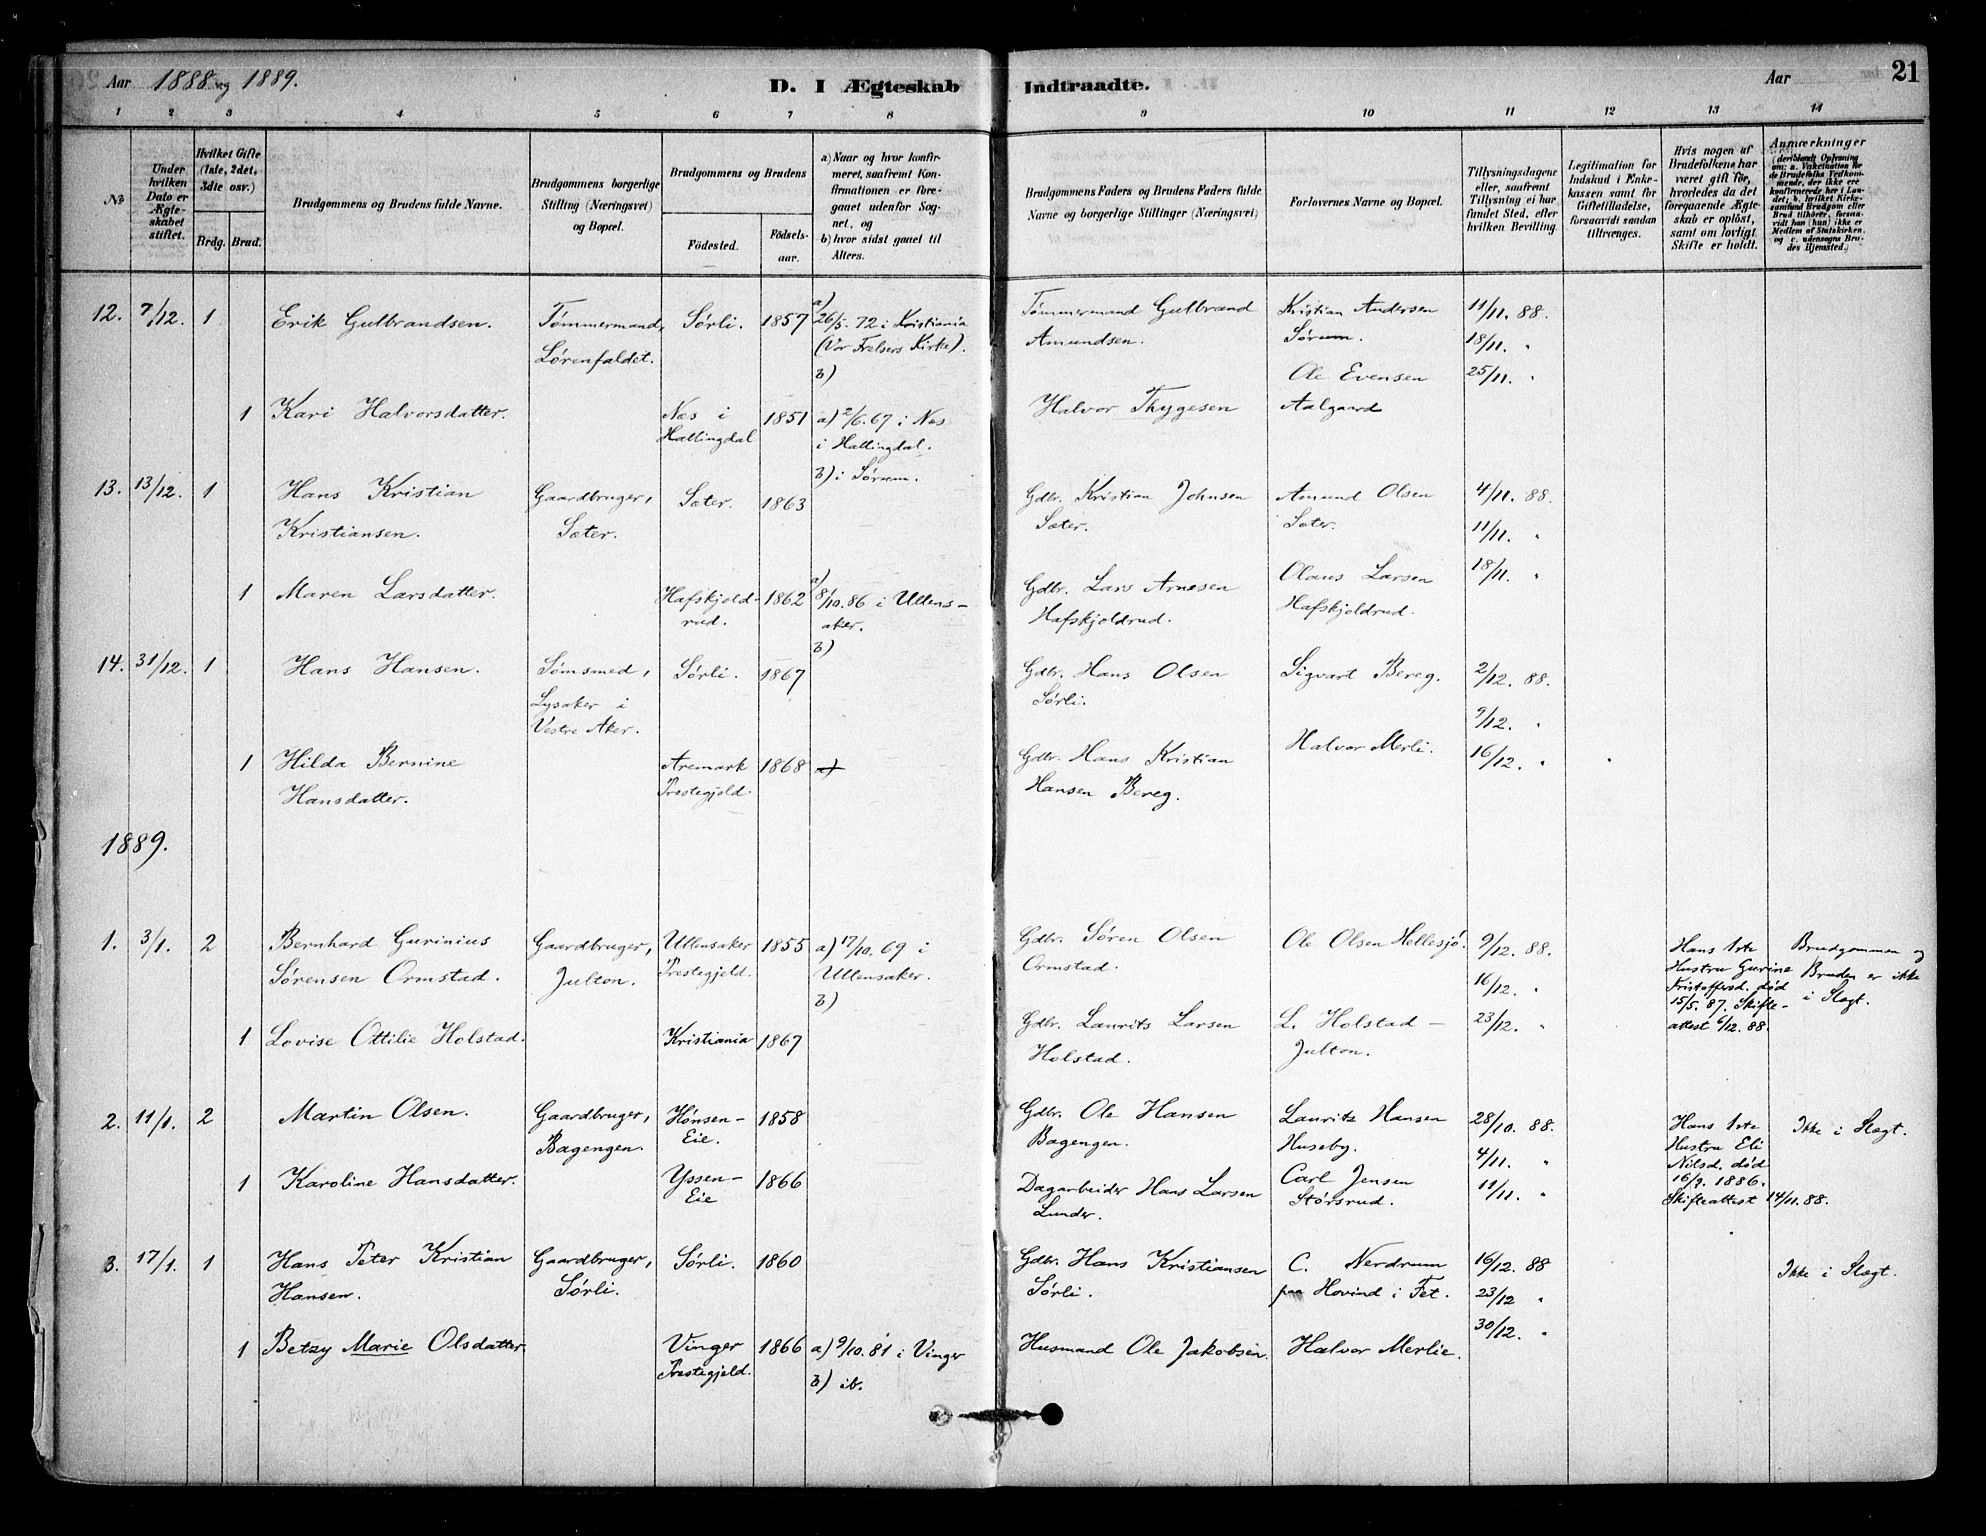 Aar 1888 og 1889.
D. I Ægteskab Indtraadte.
Aar
21
1 2 3 4 5 6 7 8 9 10 11 12 13 14
No
Under hvilken Dato er Ægteskabet stiftet.
Hvilket Gifte (1ste, 2det, 3die osv.)
Brdg. Brud.
Brudgommens og Brudens fulde Navne.
Brudgommens borgerlige Stilling (Næringsvei) og Bopæl.
Brudgommens og Brudens
Fødested.
Fødselsaar.
a) Naar og hvor konfirmeret, saafremt Konfirmationen er foregaaet udenfor Sognet, og
b) hvor sidst gaaet til Alters.
Brudgommens Faders og Brudens Faders fulde Navne og borgerlige Stillinger (Næringsvei)
Forlovernes Navne og Bopæl.
Tillysningsdagene eller, saafremt Tillysning ei har fundet Sted, efter hvilken Bevilling.
Legitimation for Indskud i Enkekassen samt for Giftetilladelse, forsaavidt saadan tiltrænges.
Hvis nogen af Brudefolkene har været gift før, hvorledes da det foregaaende Ægteskab er opløst, samt om lovligt Skifte er holdt.
Anmærkninger (deriblandt Oplysning om: a. Vakcination for de Brudefolks Vedkommende, der ikke ere konfirmerede her i Landet; b. hvilket Kirkesamfund Brudgom eller Brud tilhører, forsaavidt han (hun) ikke er Medlem af Statskirken, og c. udensogns Brudes Hjemsted.)
12. 7/12. 1 Erik Gulbrandsen. Tømmermand, Lørenfaldet. Sørli. 1857 a) 26/5. 72 i Kristiania (Vor Frelsers Kirke). b) Tømmermand Gulbrand Amundsen. Kristian Andersen Sørum. 11/11. 88. 18/11. " 25/11. "
1 Kari Halvorsdatter. Næs i Hallingdal 1851 a) 2/6. 67 i Næs i Hallingdal. b) i Sørum. Halvor Thygesen Ole Evensen Aalgaard
13. 13/12. 1 Hans Kristian Kristiansen. Gaardbruger, Sæter. Sæter. 1863 Gdbr. Kristian Johnsen Sæter. Amund Olsen Sæter. 4/11. 88. 11/11. " 18/11. "
1 Maren Larsdatter. Hafskjoldrud. 1862 a) 8/10. 86 i Ullensaker. b) Gdbr. Lars Arnesen Hafskjoldrud. Olaus Larsen Hafskjoldrud.
14. 31/12. 1 Hans Hansen. Sømsmed, Lysaker i Vestre Aker. Sørli. 1867 Gdbr. Hans Olsen Sørli. Sigvart Bereg. 2/12. 88. 9/12. " 16/12. "
1 Hilda Bernine Hansdatter. Aremark Prestegjeld. 1868 a) Gdbr. Hans Kristian Hansen Bereg. Halvor Merli.
1889.
1. 3/1. 2 Bernhard Gurinius Sørensen Ormstad. Gaardbruger, Julton. Ullensaker Prestegjeld. 1855 a) 17/10. 69 i Ullensaker. b) Gdbr. Søren Olsen Ormstad. Ole Olsen Hellesjø. 9/12. 88. 16/12. " 23/12. " Hans 1ste Hustru Gurine Kristoffersd. død 15/5. 87. Skifteattest 6/12. 88. Brudgommen og Bruden er ikke i Slægt.
1 Lovise Ottilie Holstad. Kristiania 1867 Gdbr. Laurits Larsen Holstad. L. Holstad – Julton.
2. 11/1. 2 Martin Olsen. Gaardbruger, Bagengen. Hønsen-Eie. 1858 Gdbr. Ole Hansen Bagengen. Lauritz Hansen Huseby. 28/10. 88. 4/11. " 11/11. " Hans 1ste Hustru Eli Nilsd. død 16/2. 1886. Skifteattest 14/11. 88. Ikke i Slægt.
1 Karoline Hansdatter. Yssen-Eie 1866 Dagarbeider Hans Larsen Lunder. Carl Jensen Størsrud.
3. 17/1. 1 Hans Peter Kristian Hansen. Gaardbruger, Sørli. Sørli. 1860 Gdbr. Hans Kristiansen Sørli. C. Nerdrum paa Hovind i Fet. 16/12. 88 23/12 " 30/12. " Ikke i Slægt.
1 Betzy Marie Olsdatter Vinger Prestegjeld. 1866 a) 9/10. 81 i Vinger b) ib. Husmand Ole Jakobsen. Halvor Merlie.